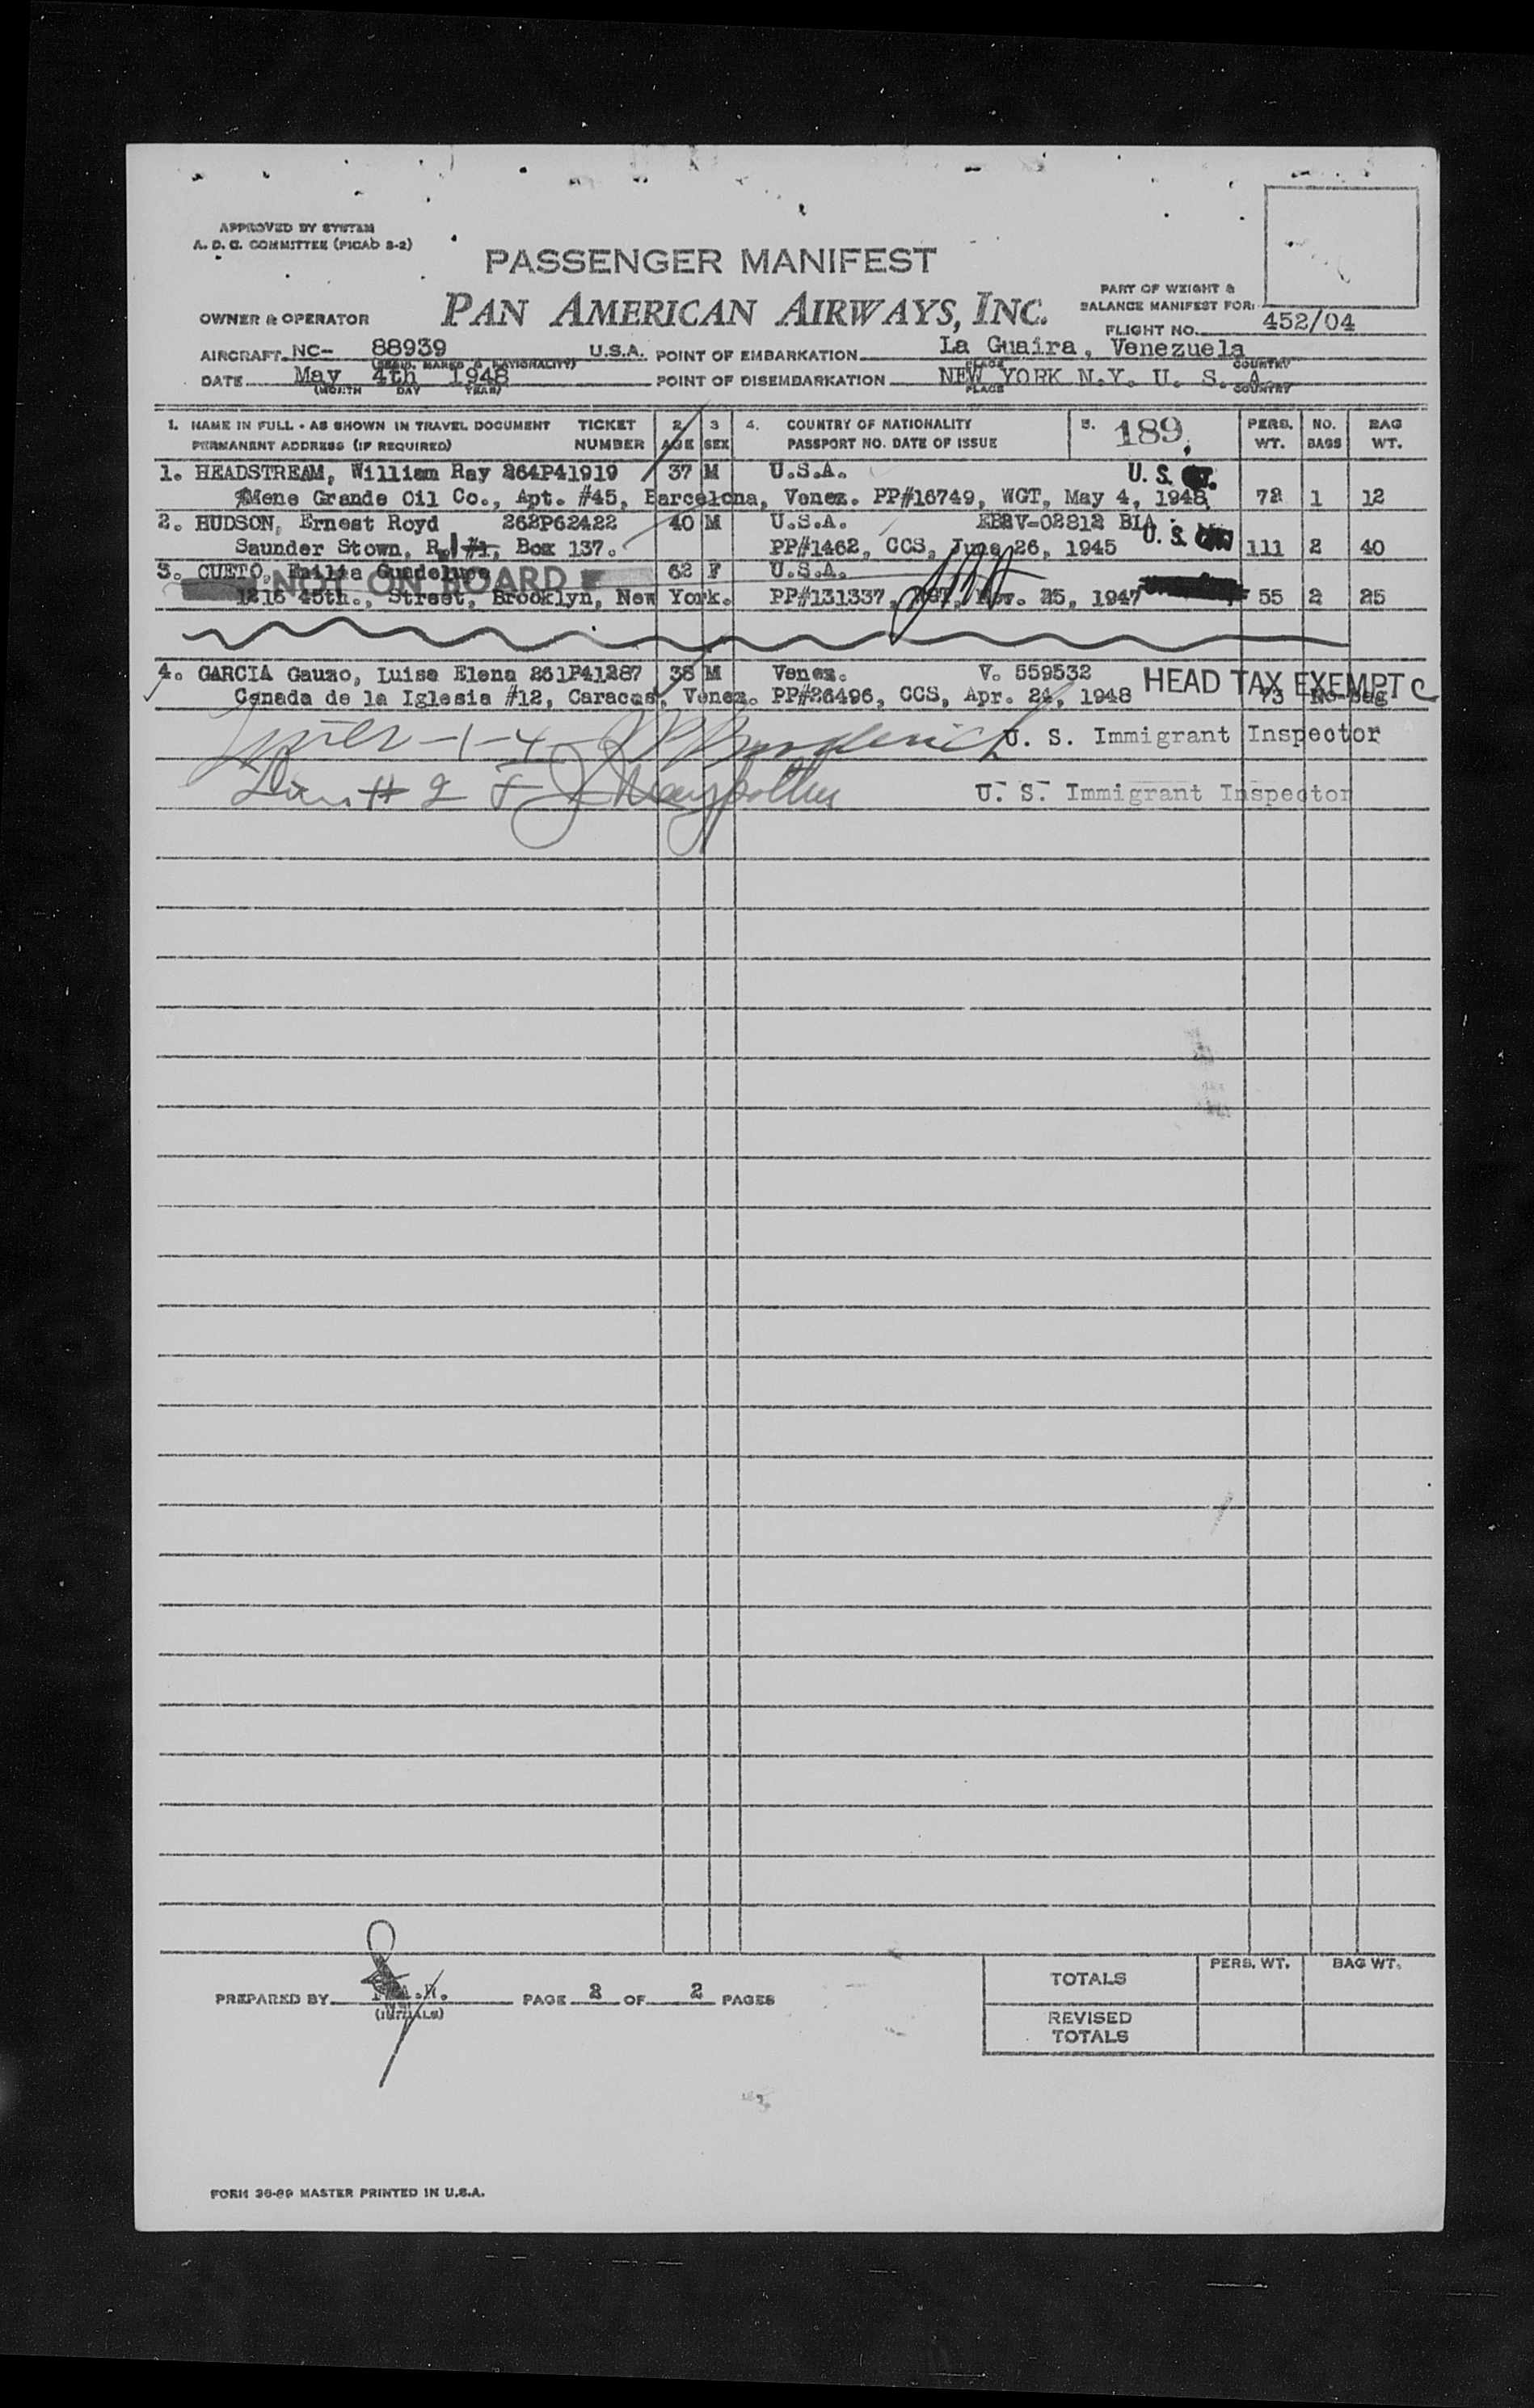 APPROVED BY SYSTEM
A. D. C. COMMITTEE (PICAO 3-2)
PASSENGER MANIFEST
PART OF WEIGHT &
BALANCE MANIFEST FOR:
OWNER & OPERATOR PAN AMERICAN AIRWAYS, INC.
FLIGHT NO. 452/04
AIRCRAFT NC- 88939 U.S.A. POINT OF EMBARKATION La Guaira, Venezuela
PLACE COUNTRY
DATE May 4th 1948 POINT OF DISEMBARKATION NEW YORK N.Y. U. S. A.
(MONTH DAY YEAR) PLACE COUNTRY
1. NAME IN FULL - AS SHOWN IN TRAVEL DOCUMENT TICKET 2 3 4. COUNTRY OF NATIONALITY 5. 189 PERS. NO. BAG
PERMANENT ADDRESS (IF REQUIRED) NUMBER AGE SEX PASSPORT NO. DATE OF ISSUE WT. BAGS WT.
1. HEADSTREAM, William Ray 264P41919 37 M U.S.A. U. S.
Mene Grande Oil Co., Apt. #45, Barcelona, Venez. PP#16749, WGT, May 4, 1948 72 1 12
2. HUDSON, Ernest Royd 262P62422 40 M U.S.A. BIA
Saunder Stown, R. #1, Box 137. PP#1462, CCS, June 26, 1945 U. S. 111 2 40
3. CUETO, Emilia Guadelupe 62 F U.S.A.
NOT ON BOARD
1216 45th., Street, Brooklyn, New York. PP#131337, Nov. 25, 1947 55 2 25
4. GARCIA Gauzo, Luisa Elena 261P41287 38 M Venez. V. 559532 HEAD TAX EXEMPT C
Canada de la Iglesia #12, Caracas, Venez. PP#26496, CCS, Apr. 24, 1948 73 No-bag
U. S. Immigrant Inspector
U. S. Immigrant Inspector
PREPARED BY
(INITIALS)
PAGE 2 OF 2 PAGES
PERS. WT. BAG WT.
TOTALS
REVISED
TOTALS
FORM 36-69 MASTER PRINTED IN U.S.A.